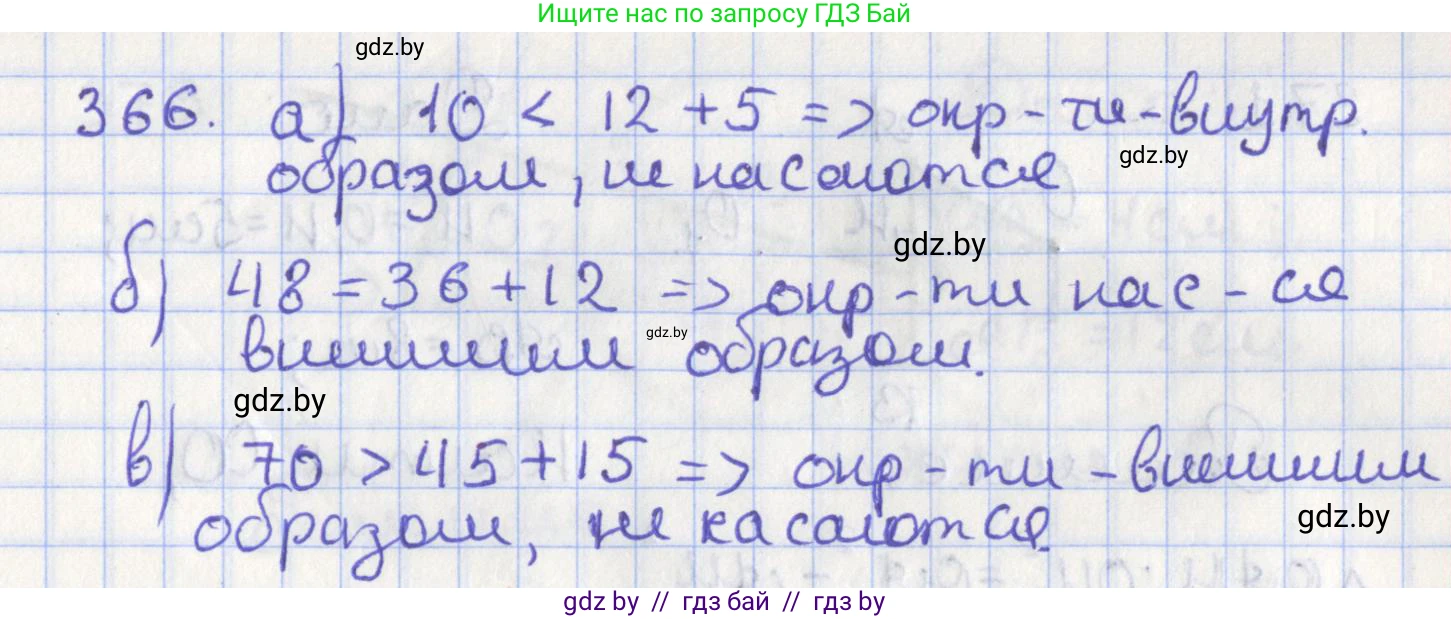 Ищите нас по запросу ГДЗ Бай
gdz.by
366. а) 10 < 12 + 5 => окр-ти-внутр.
образом, не насаются
gdz.by
gdz.by
б) 48 = 36 + 12 => окр-ти нас-ся
внешним образом.
gdz.by
gdz.by
в) 70 > 45 + 15 => окр-ти - внешним
образом, не касаются
gdz.by
gdz by // гдз бай // гдз by